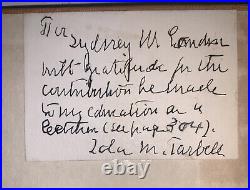 For
Sydney W. Landon
with gratitude for the
contribution he made
to my education as a
Lecturer (see page 304).
Ida M. Tarbell